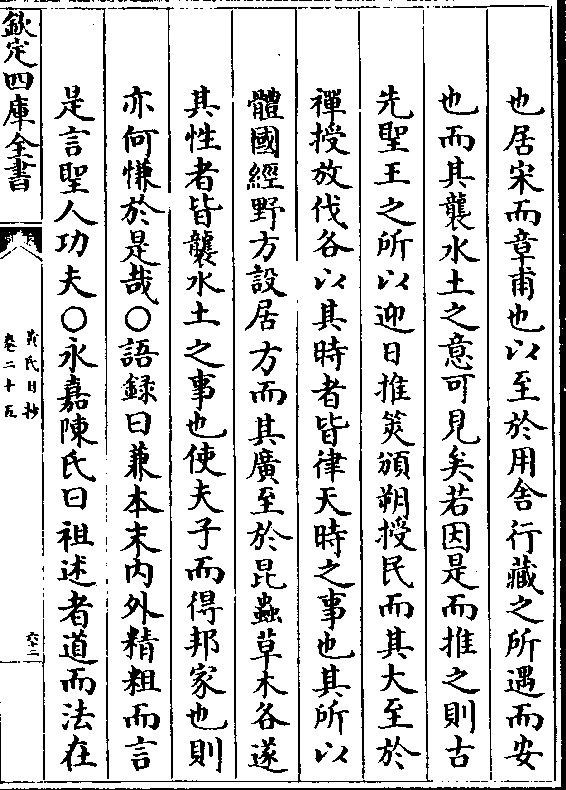 也居宋而章甫也以至於用舍行藏之所遇而安
也而其襲水土之意可見矣若因是而推之則古
先聖王之所以迎日推筴頒朔授民而其大至於
禪授放伐各以其時者皆律天時之事也其所以
體國經野方設居方而其廣至於昆蟲草木各遂
其性者皆襲水土之事也使夫子而得邦家也則
亦何慊於是哉○語録曰兼本末内外精粗而言
是言聖人功夫○永嘉陳氏曰祖述者道而法在
欽定四庫全書
黄氏日抄
卷二十五